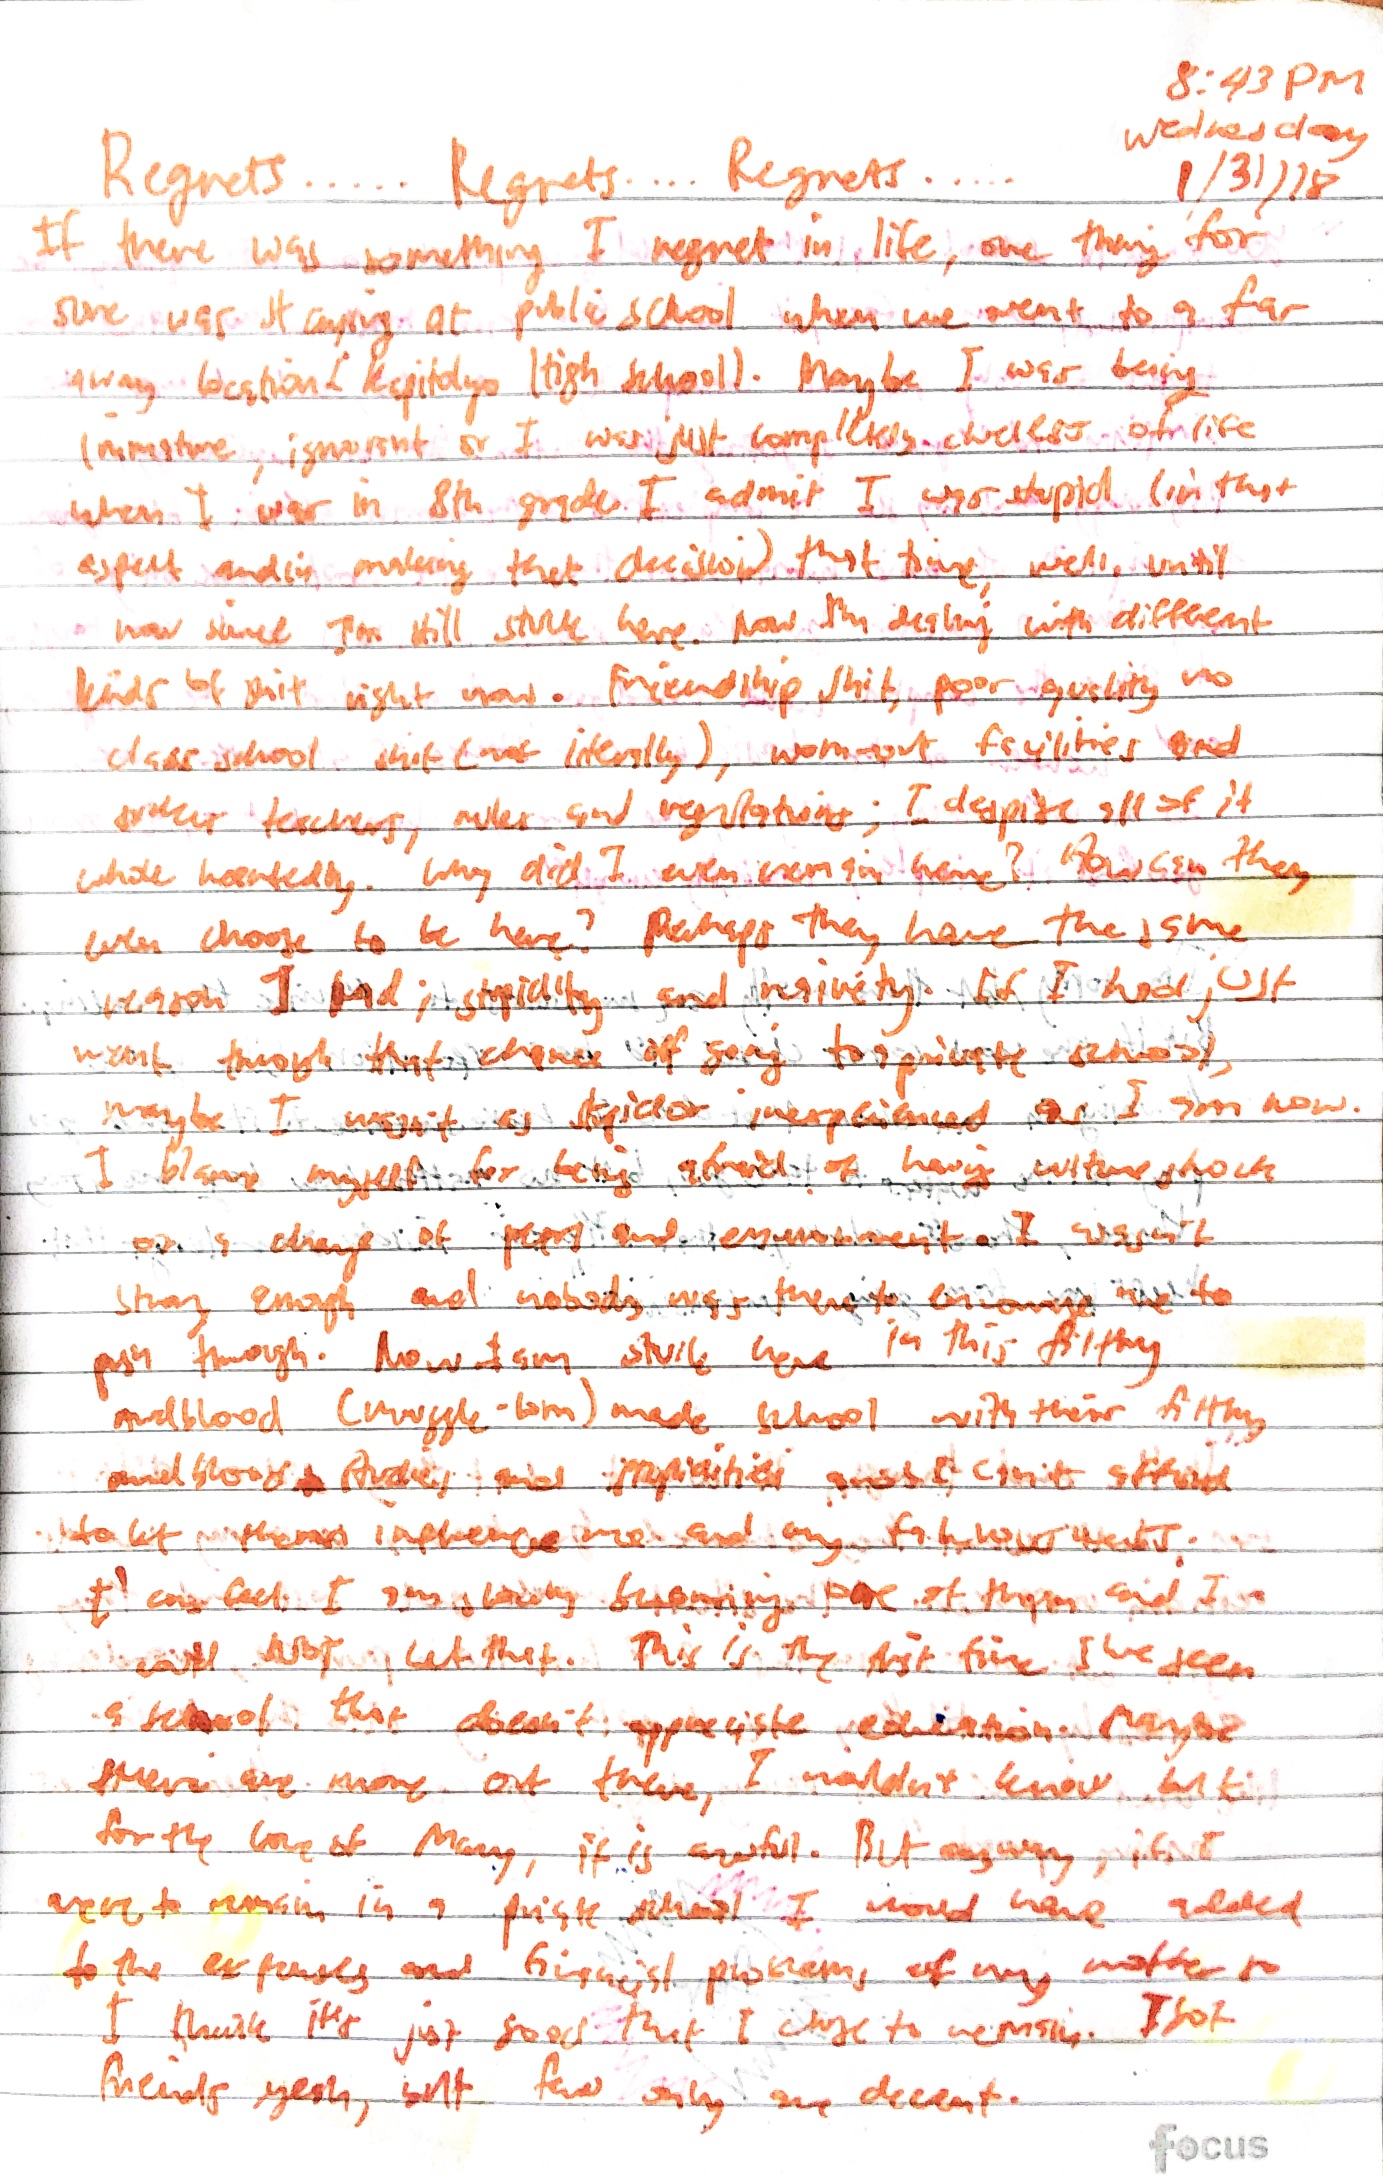 8:43 PM
Wednesday
1/31/18
Regrets...... Regrets.... Regrets.....
If there was something I regret in life, one thing for
sure was staying at public school when we went to a far
away location (Kapitolyo High School). Maybe I was being
immature, ignorant or I was just completely clueless of life
when I was in 8th grade. I admit I was stupid (in that
aspect and in making that decision) that time, well, until
now since I'm still stuck here. Now I'm dealing with different
kinds of shit right now. Friendship shit, poor quality no
class school shit (not literally), worn-out facilities and
teachers, rules and regulations; I despise all of it
whole heartedly. Why did I even remain here? How can they
even choose to be here? Perhaps they have the same
reason I had; stupidity and naivety. If I had just
went through that chance of going to a private school,
maybe I wasn't as stupid or inexperienced as I am now.
I blame myself for being afraid of having culture shock
or a change of peers and environment. I wasn't
strong enough and nobody was there to encourage me to
push through. Now I am stuck here in this filthy
mudblood (muggle-born) made school with their filthy
mudblood studies and stupidities and I can't afford
to let them influence me and my
I can feel I am slowly becoming one of them and I
will not let that. This is the first time I've seen
a school that doesn't appreciate education. Maybe
there are more out there, I wouldn't know but
for the love of Mary, it is awful. But anyway, if I
were to remain in a private school I would have added
to the expenses and financial problems of my mother so
I think it's just good that I chose to remain. I got
friends yeah, but few only are decent.
focus